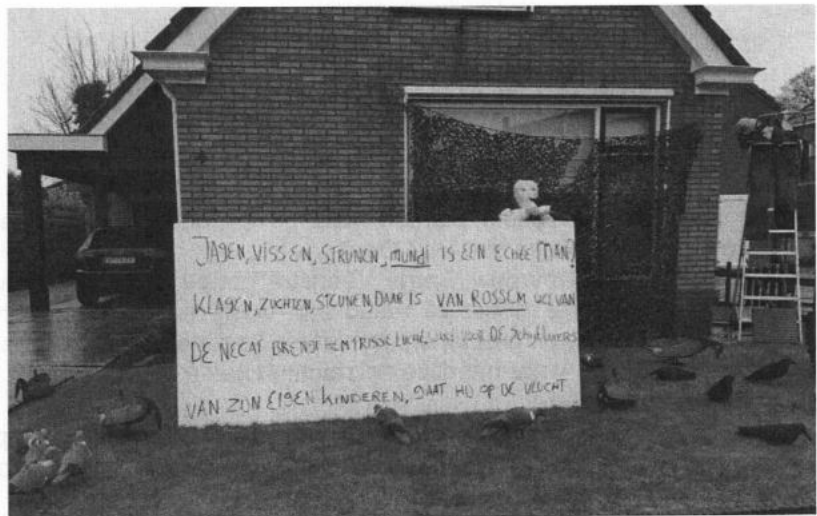 JAGEN, VISSEN, STRUNEN, MUNDI IS EEN ECHTE MAN?
KLAGEN, ZUCHTEN, STEUNEN, DAAR IS VAN ROSSEM VAN
DE NECAT BRENGT HEM FRISSE LUCHT, VOOR DE
VAN ZIJN EIGEN KINDEREN, GAAT HIJ OP DE VLUCHT